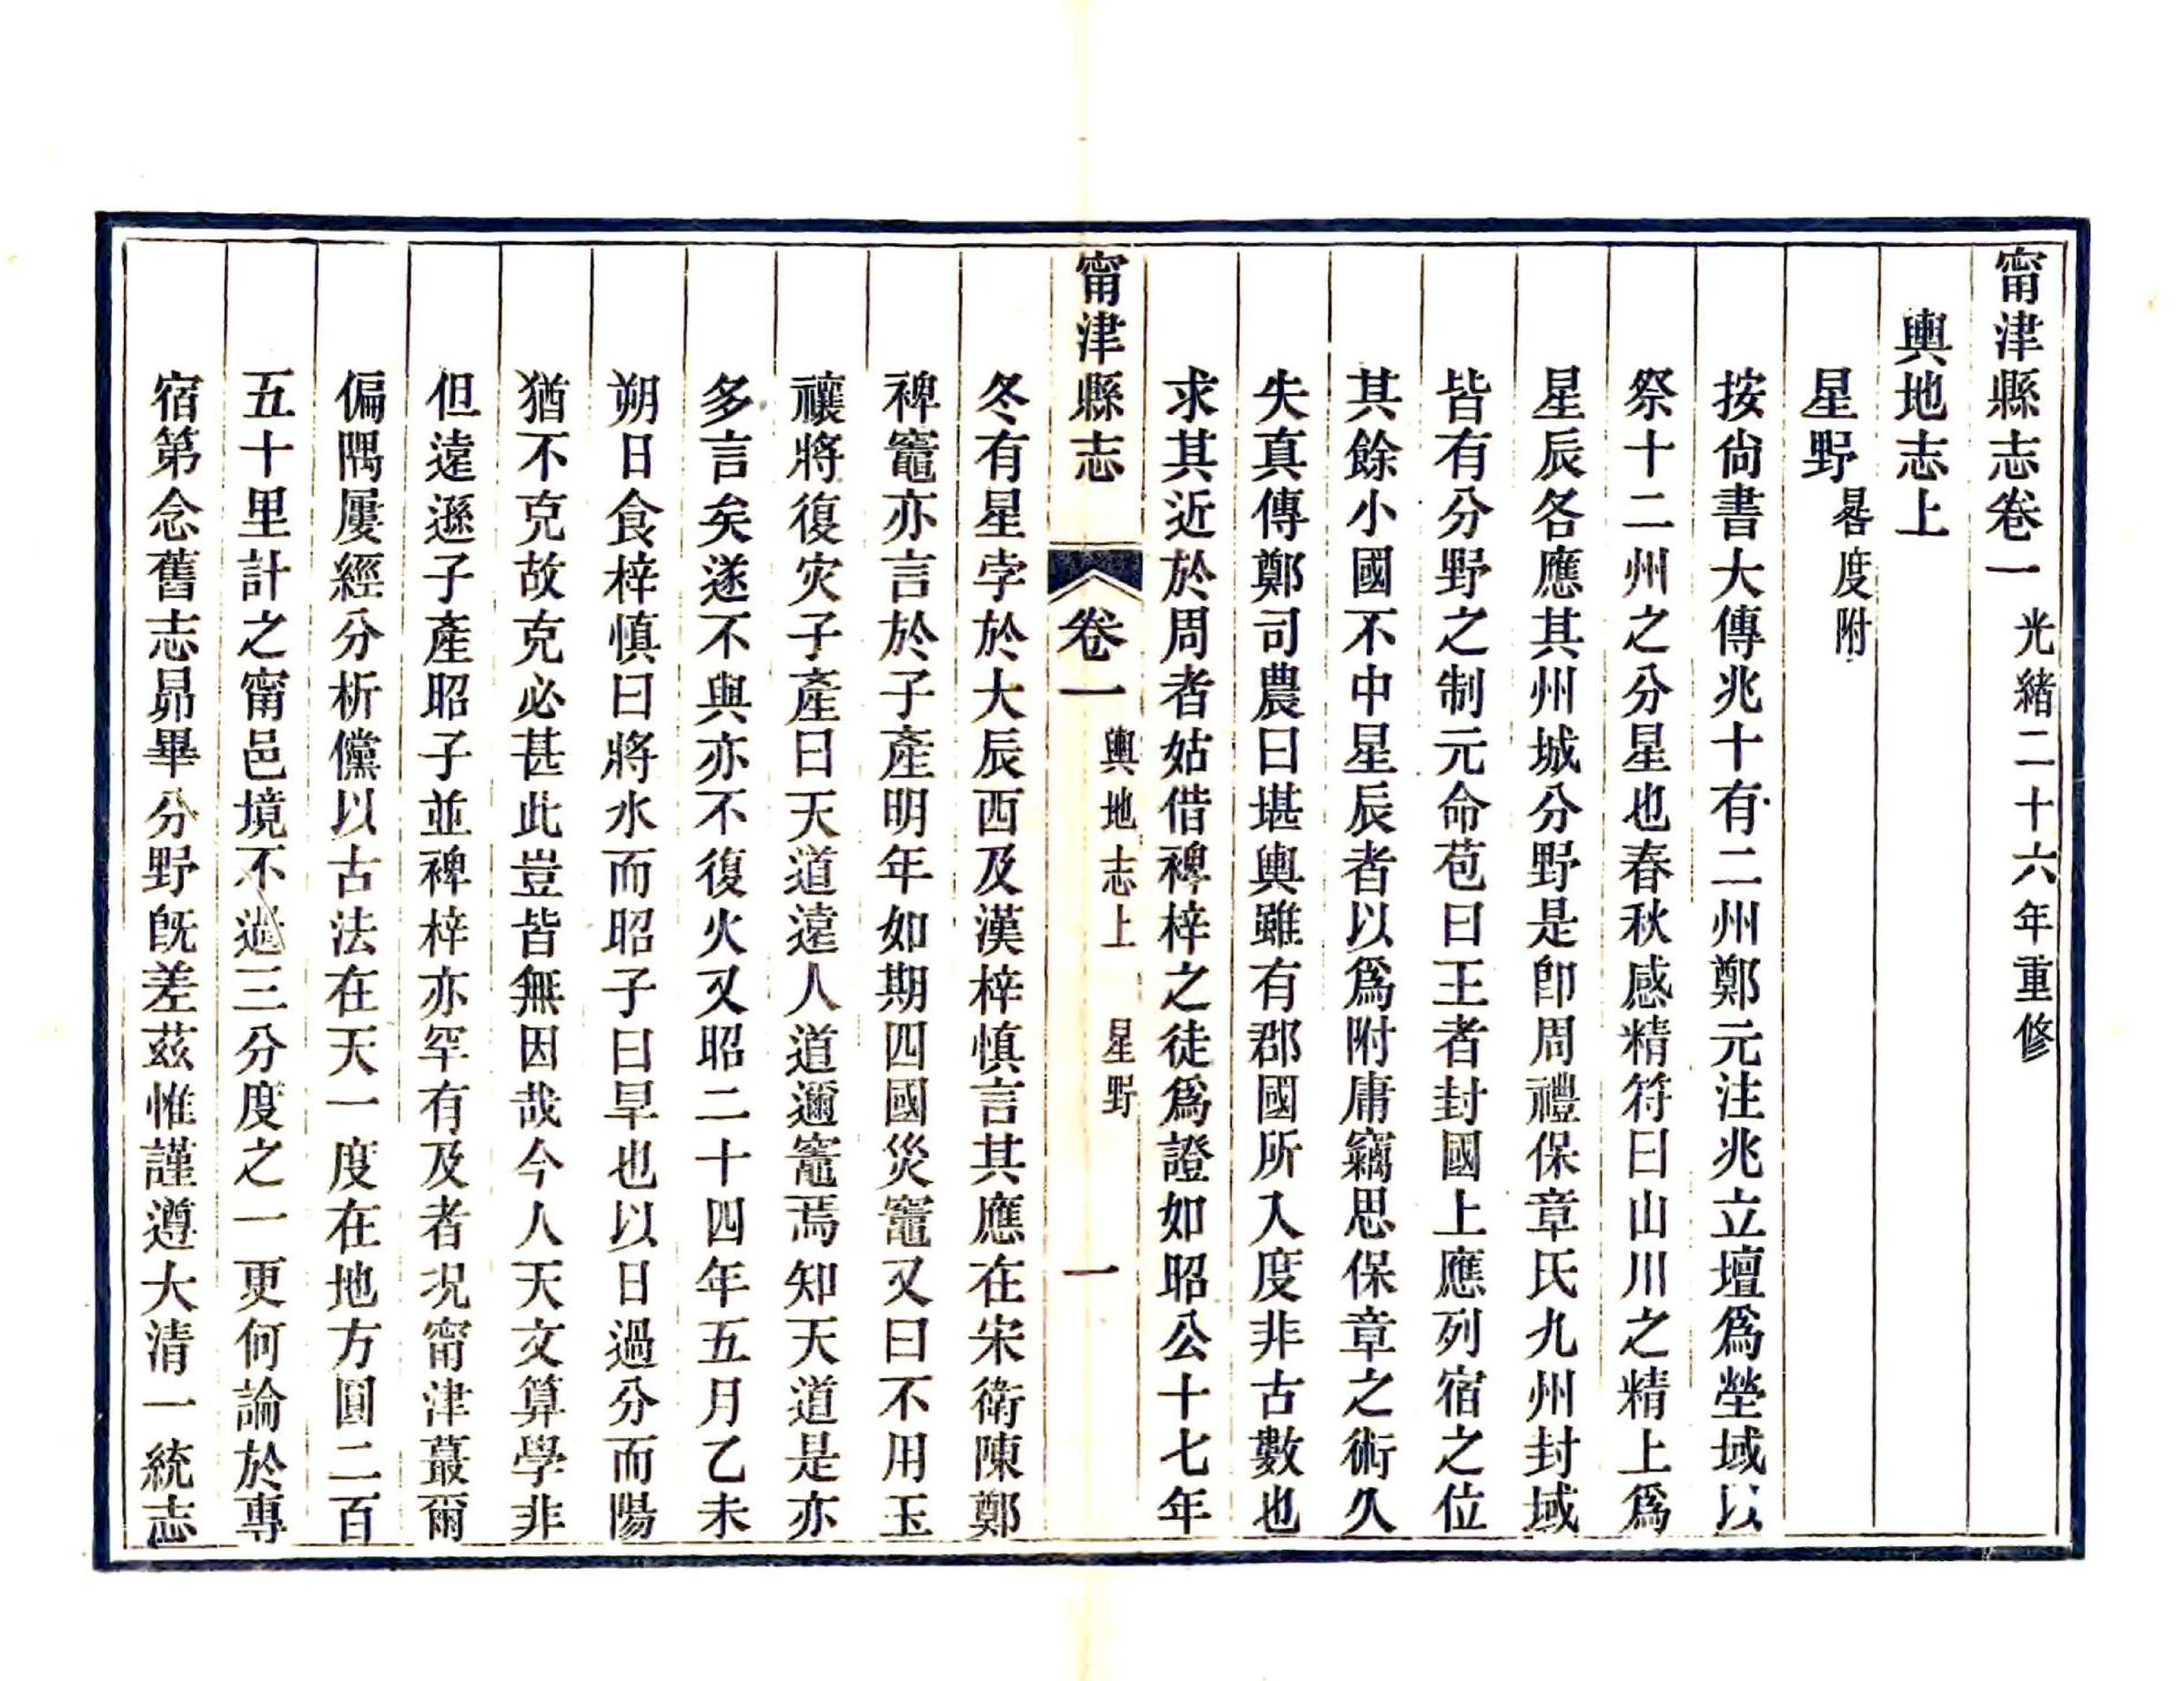 甯津縣志卷一 光緒二十六年重修
輿地志上
星野晷度附
按尙書大傳兆十有二州鄭元注兆立壇爲塋域以
祭十二州之分星也春秋感精符曰山川之精上爲
星辰各應其州城分野是卽周禮保章氏九州封域
皆有分野之制元命苞曰王者封國上應列宿之位
其餘小國不中星辰者以爲附庸竊思保章之術久
失真傳鄭司農曰堪輿雖有郡國所入度非古數也
求其近於周者姑借裨梓之徒爲證如昭公十七年
甯津縣志 卷一 輿地志上 星野 一
冬有星孛於大辰西及漢梓慎言其應在宋衛陳鄭
裨竈亦言於子產明年如期四國災竈又曰不用玉
禳將復灾子產曰天道遠人道邇竈焉知天道是亦
多言矣遂不與亦不復火又昭二十四年五月乙未
朔日食梓慎曰將水而昭子曰旱也以日過分而陽
猶不克故克必甚此豈皆無因哉今人天文算學非
但遠遜子產昭子並裨梓亦罕有及者況甯津蕞爾
偏隅屢經分析儻以古法在天一度在地方圓二百
五十里計之甯邑境不過三分度之一更何論於專
宿第念舊志昴畢分野旣差茲惟謹遵大清一統志